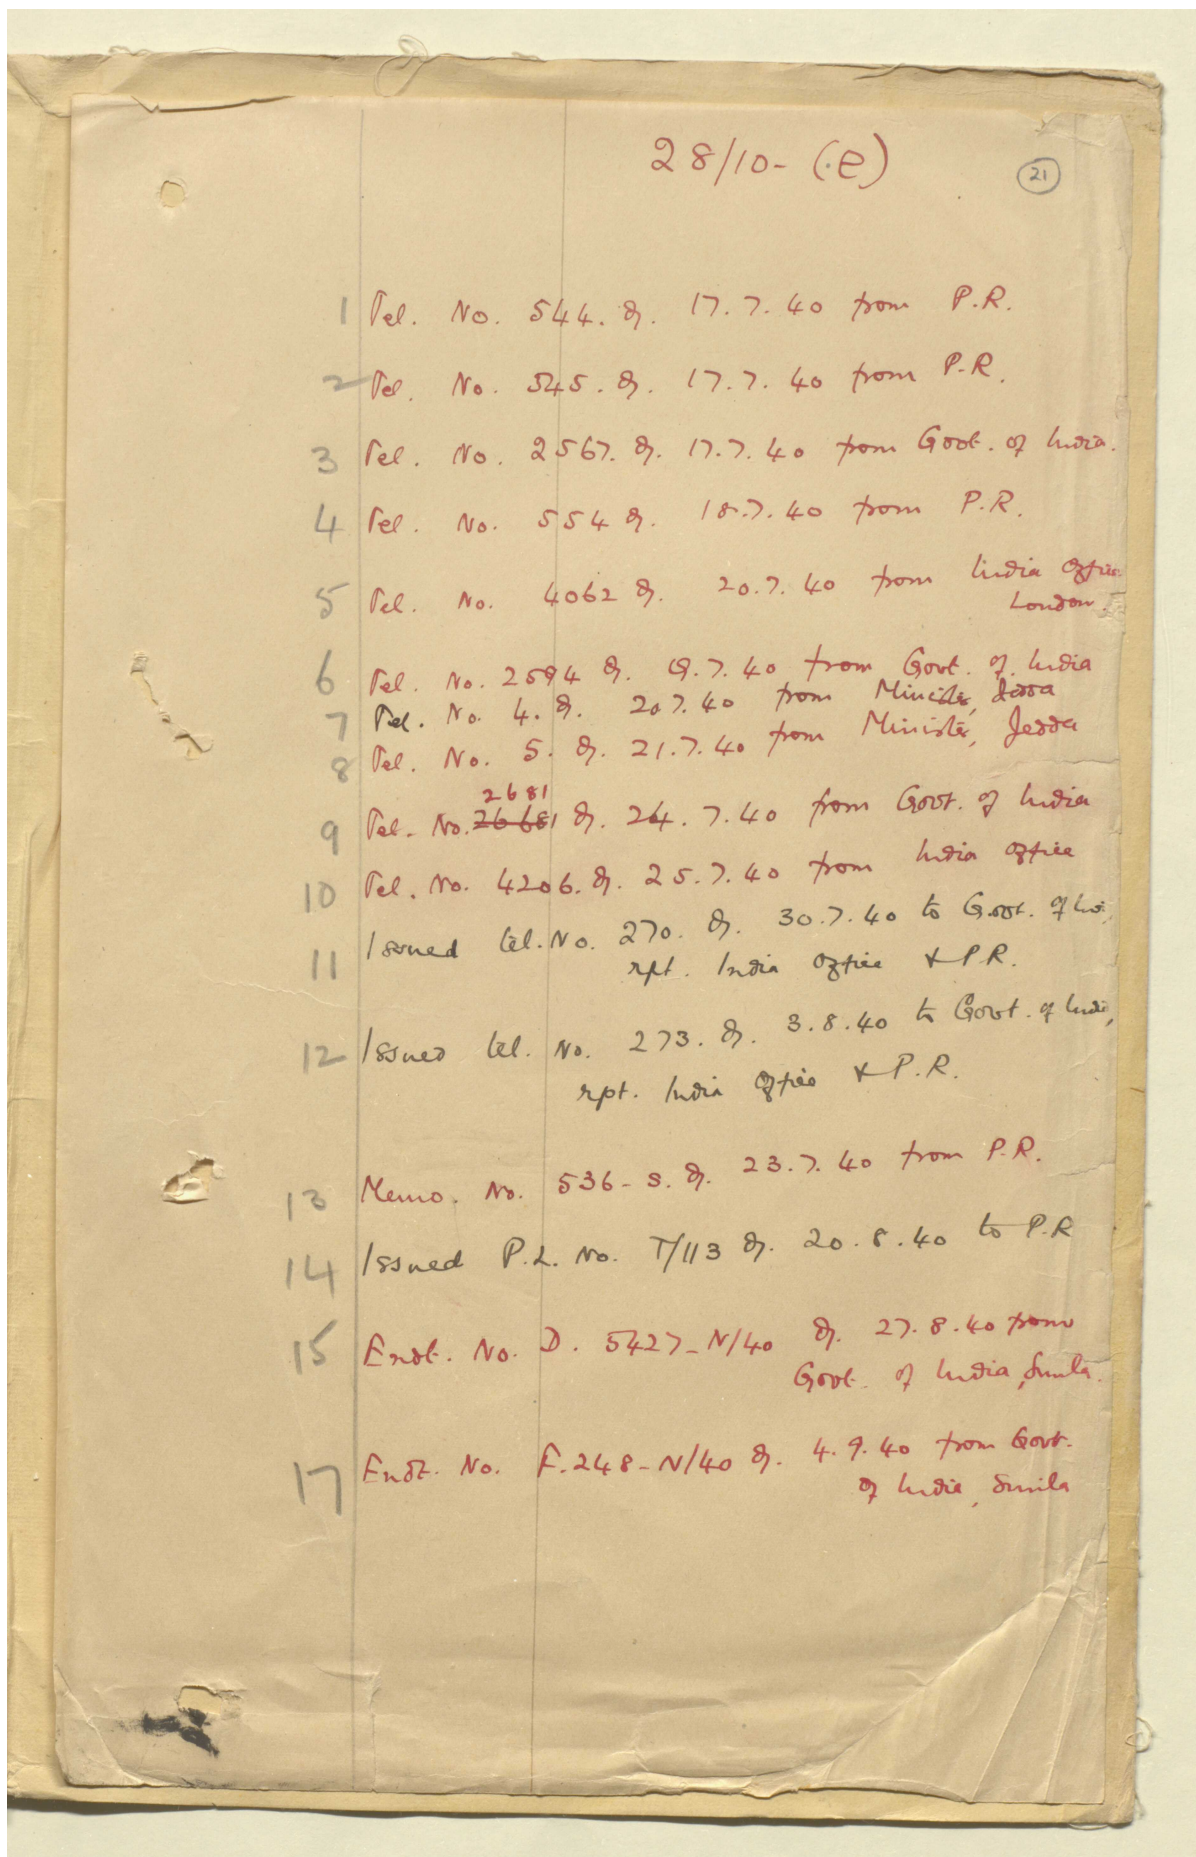 28/10-(.e)
21
1 Tel. No. 544. d. 17.7.40 from P.R.
2 Tel. No. 545. d. 17.7.40 from P.R.
3 Tel. No. 2567. d. 17.7.40 from Govt. of India.
4 Tel. No. 554 d. 18.7.40 from P.R.
5 Tel. No. 4062 d. 20.7.40 from India Office
London.
6 Tel. No. 2594 d. 7.40 from Govt. of India
7 Tel. No. 4. d. 20.7.40 from Minister, Jedda
8 Tel. No. 5. d. 21.7.40 from Minister, Jedda
2681
9 Tel. No. 26681 d. 24.7.40 from Govt. of India
10 Tel. No. 4206. d. 25.7.40 from India Office
11 Issued tel. No. 270. d. 30.7.40 to Govt. of Ind.,
rpt. India Office & P.R.
12 Issued tel. No. 273. d. 3.8.40 to Govt. of India,
rpt. India Office & P.R.
13 Memo. No. 536-S. d. 23.7.40 from P.R.
14 Issued P.L. No. T/113 d. 20.8.40 to P.R
15 Endt. No. D. 5427-N/40 d. 27.8.40 from
Govt. of India, Simla.
17 Endt. No. F.248-N/40 d. 4.9.40 from Govt.
of India, Simla